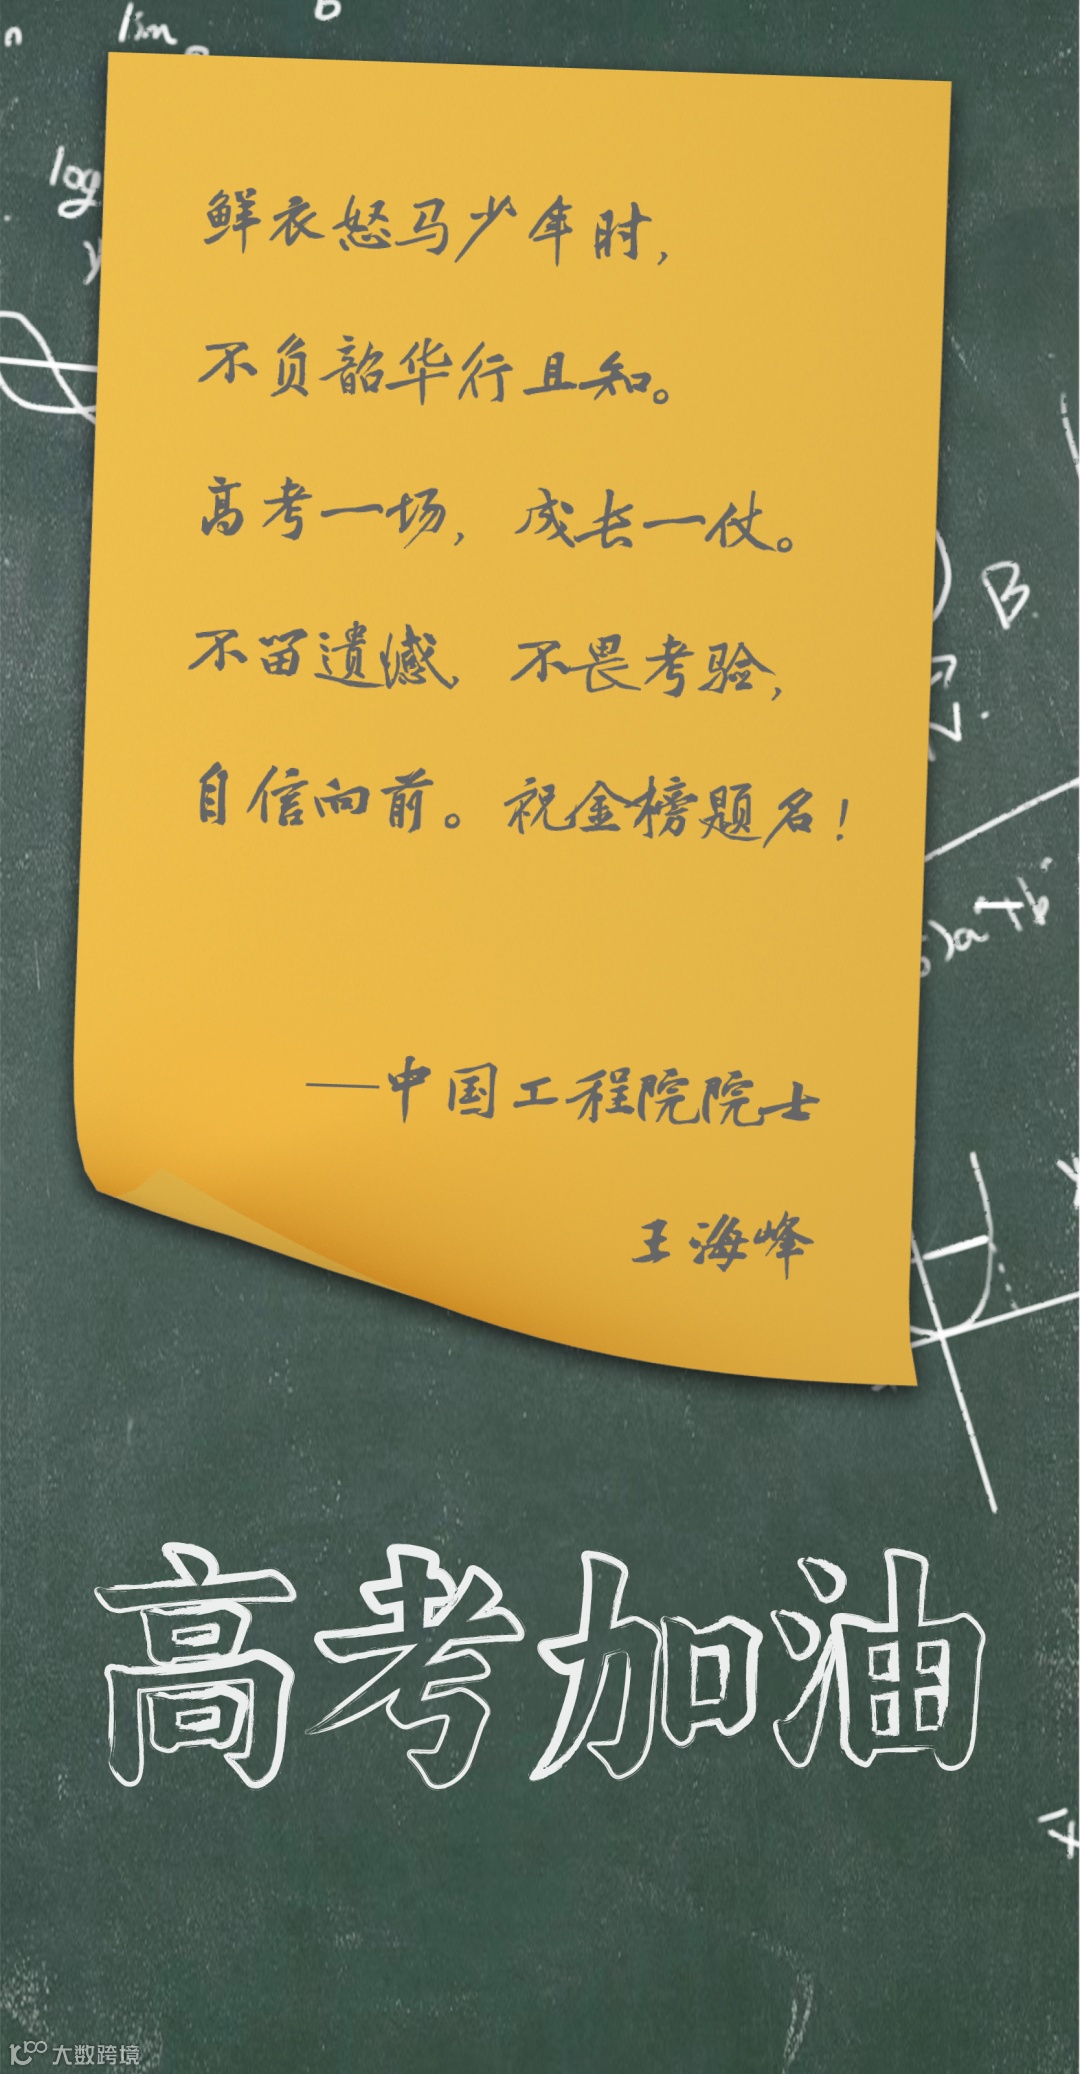 n
lim
B
log
y
鲜衣怒马少年时，
不负韶华行且知。
高考一场，成长一仗。
不留遗憾，不畏考验，
自信向前。祝金榜题名！
B
)a+b
——中国工程院院士
王海峰
高考加油
大数跨境